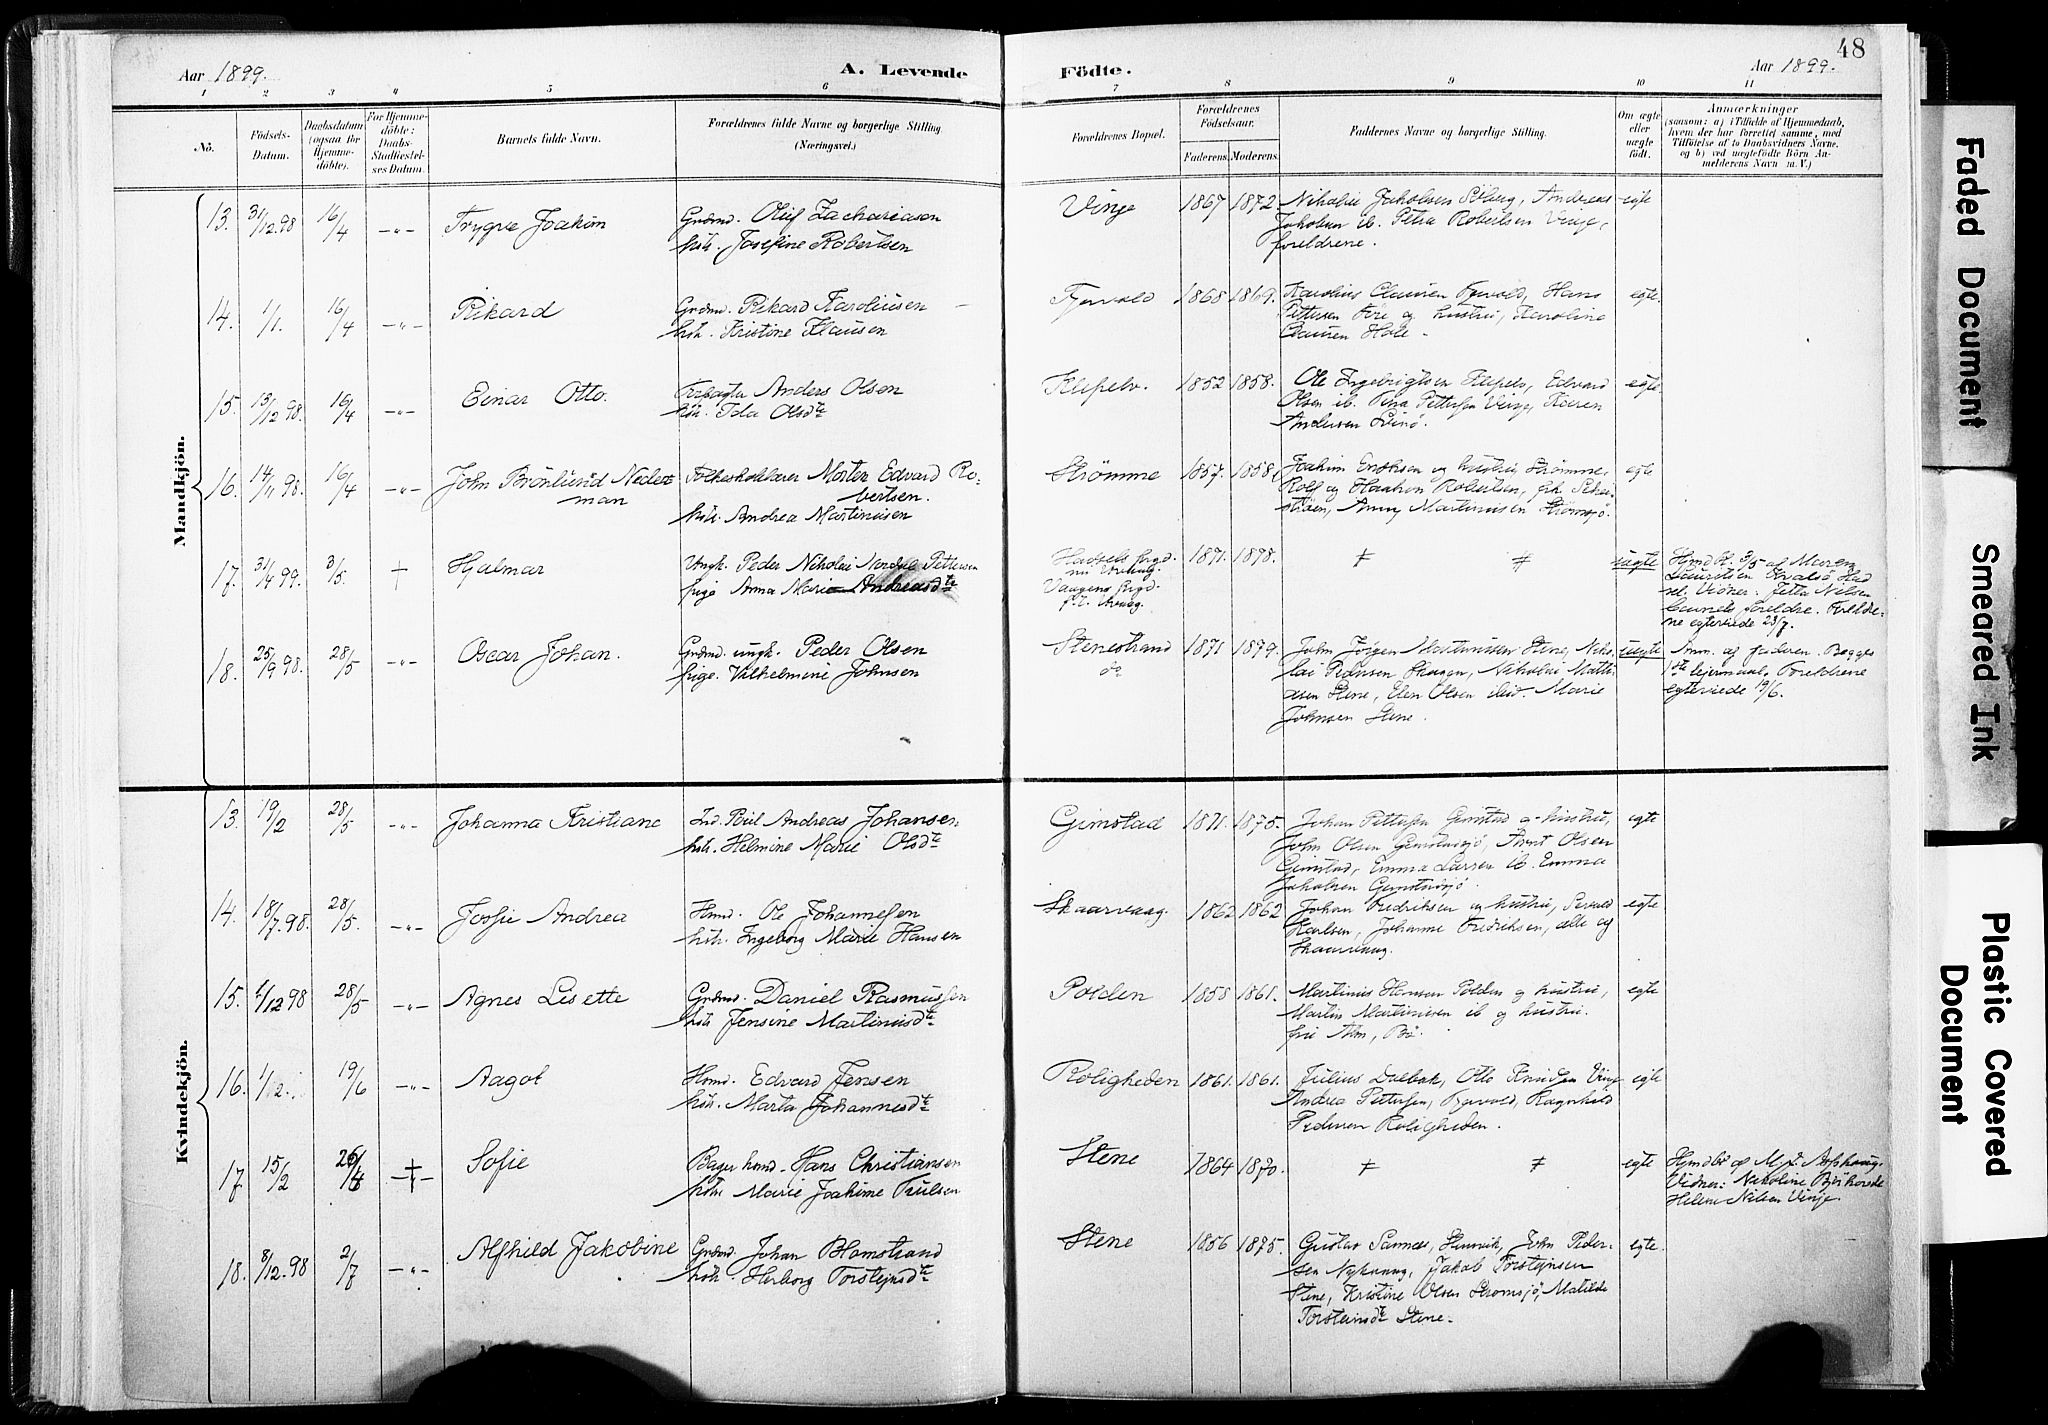 48
Aar 1899.
A. Levende
Födte.
Aar 1899.
1 2 3 4 5 6 7 8 9 10 11
No.
Födsels-
Datum.
Daabsdatum
(ogsaa for
Hjemme-
döbte).
For Hjemme-
döbte:
Daabs-
Stadfæstel-
ses Datum.
Barnets fulde Navn.
Forældrenes fulde Navne og borgerlige Stilling.
(Næringsvei.)
Forældrenes Bopæl.
Forældrenes
Födselsaar.
Faderens. Moderens.
Faddernes Navne og borgerlige Stilling.
Om ægte
eller
uægte
födt.
Anmærkninger
(saasom: a) i Tilfælde af Hjemmedaab,
hvem der har forrettet samme, med
Tilföielse af to Daabsvidners Navne.
og b) ved uægtefödte Börn An-
melderens Navn m. V.)
Mandkjön.
13. 31/12.98 16/4 -"- Trygve Joakim
Grdmd. Oluf Zachariasen
hstr. Josefine Robertsen
Vinje 1867 1872.
Nikolai Jakobsen Söberg, Andreas
Jakobsen ib. Petra Robertsen Vinje,
foreldrene.
egte
14. 1/1. 16/4 -"- Rikard
Grdmd. Rikard Karoliusen
hstr. Kristine Klausen
Tjervold 1868 1869.
Karolius Clausen Tjervold, Hans
Pettersen Före og hustru, Karoline
Clausen Hole.
egte.
15. 13/12 98. 16/4 -"- Einar Otto.
Anders Olsen
hstr. Ida Olsdte
Klepelv. 1852 1858.
Ole Ingebrigtsen Klepelv, Edvard
Olsen ib. Tina Pettersen Vinje, Karen
Andersen Svinö.
egte.
16. 14/11 98. 16/4 -"- John Brönlund Neder-
man
Folkeskolelærer Morten Edvard Ro-
bertsen.
hstr. Andrea Martinusen
Strömme 1857. 1858.
Joakim Eriksen og hustru Strömme,
Rolf og Haakon Robertsen, frk.
Anny Martinusen Strömsjö.
egte
17. 31/4 99. 3/5. + Hjalmar
Ungk. Peder Nikolai Nordal Pettersen
pige Anna Marie Andreasdte
Hadsels Prgd.
Vaagens Prgd.
1871. 1878.
uegte
Hjmdöbt 3/5 af Maren
Lauritsen Kvalsö Had-
sel. Vidner: Jetta Nilsen
barnets foreldre. Foreldre-
ne egteviede 23/7.
18. 25/9 98. 28/5 -"- Oscar Johan.
Grdmd. ungk. Peder Olsen
pige. Vilhelmine Johnsen
Stenestrand
do
1871 1879.
John Jörgen Martinussen Stene, Niko-
lai Pedersen Skagen, Nikolai Matti-
asen Stene, Elen Olsen ibid. Marie
Johnsen Stene.
uegte
Anm. af faderen. Begges
1ste leiermaal. Foreldrene
egteviede 19/6.
Kvindekjön.
13. 19/2 28/5 -"- Johanna Kristiane
Ind. Paul Andreas Johansen
hstr. Helmine Marie Olsdte
Gimstad 1871. 1875.
Johan Pettersen Gimstad og hustru,
John Olsen Gimstadsjö, Arnt Olsen
Gimstad, Emma Larsen ib. Emma
Jakobsen Gimstadsjö.
egte
14. 18/7.98. 28/5. -"- Jossie Andrea
Hmd. Ole Johannesen
hstr. Ingeborg Marie Hansen
Skaarvaag. 1862 1862
Johan Fredriksen og hustru,
Karlsen, Johanna Fredriksen, alle og
Skaarvaag.
egte
15. 28/5 -"- Agnes Lisette
Grdmd. Daniel Rasmussen
hstr Jensine Martinusdte
Polden 1858 1861.
Martinus Hansen Polden og hustru,
Martin Martinusen ib og hustru.
Bö.
egte
16. 1/12. 19/6 -"- Aagot
Hmd. Edvard Jensen
hstr. Marta Johannesdte
Roligheden 1861. 1861.
Julius Dalbak, Otto Knudsen Vinje
Andrea Pettersen, Tjervold, Ragnhild
Pedersen Roligheden.
egte
17 15/2 -+- Sofie
Bager hmd. Hans Christiansen
hstr Marie Joakime Trulsen
Stene 1864 1870.
egte
Hjmdbt af M. J.
Vidner: Nikoline
Helene Nilsen Vinje.
18. 8/12.98 2/7 -"- Alfhild Jakobine
Grdmd. Johan Blomstrand
hstr. Herborg Torstejnsdte
Stene 1856 1875.
Gustav Sannes, Henrik, John Peder-
sen Nykvaag, Jakob Torstejnsen
Stene, Kristine Olsen Stromsjö, Matilde
Torsteinsdte Stene.
egte.
Faded Document
Smeared Ink
Plastic Covered
Document